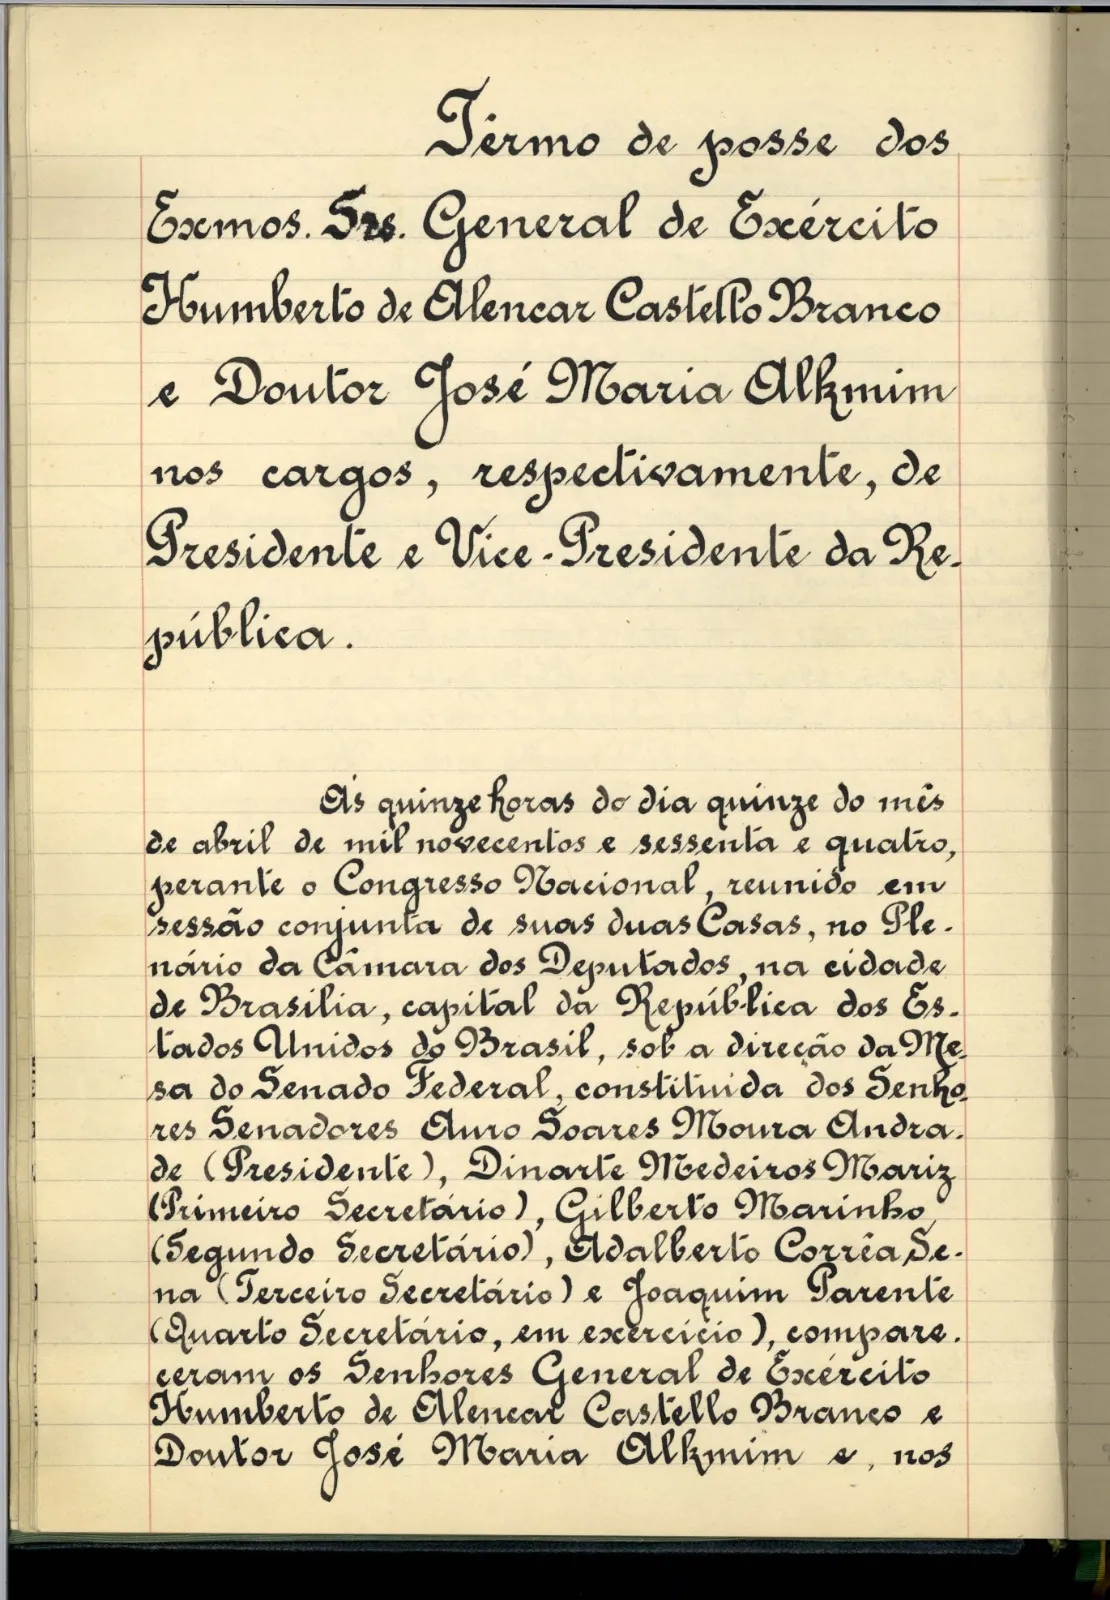 Têrmo de posse dos
Exmos. Srs. General de Exército
Humberto de Alencar Castello Branco
e Doutor José Maria Alkmim
nos cargos, respectivamente, de
Presidente e Vice-Presidente da Re-
pública.
Às quinze horas do dia quinze do mês
de abril de mil novecentos e sessenta e quatro,
perante o Congresso Nacional, reunido em
sessão conjunta de suas duas Casas, no Ple-
nário da Câmara dos Deputados, na cidade
de Brasília, capital da República dos Es-
tados Unidos do Brasil, sob a direção da Me-
sa do Senado Federal, constituida dos Senho-
res Senadores Auro Soares Moura Andra-
de (Presidente), Dinarte Medeiros Mariz
(Primeiro Secretário), Gilberto Marinho
(Segundo Secretário), Adalberto Corrêa Se-
na (Terceiro Secretário) e Joaquim Parente
(Quarto Secretário, em exercício), compare-
ceram os Senhores General de Exército
Humberto de Alencar Castello Branco e
Doutor José Maria Alkmim e, nos